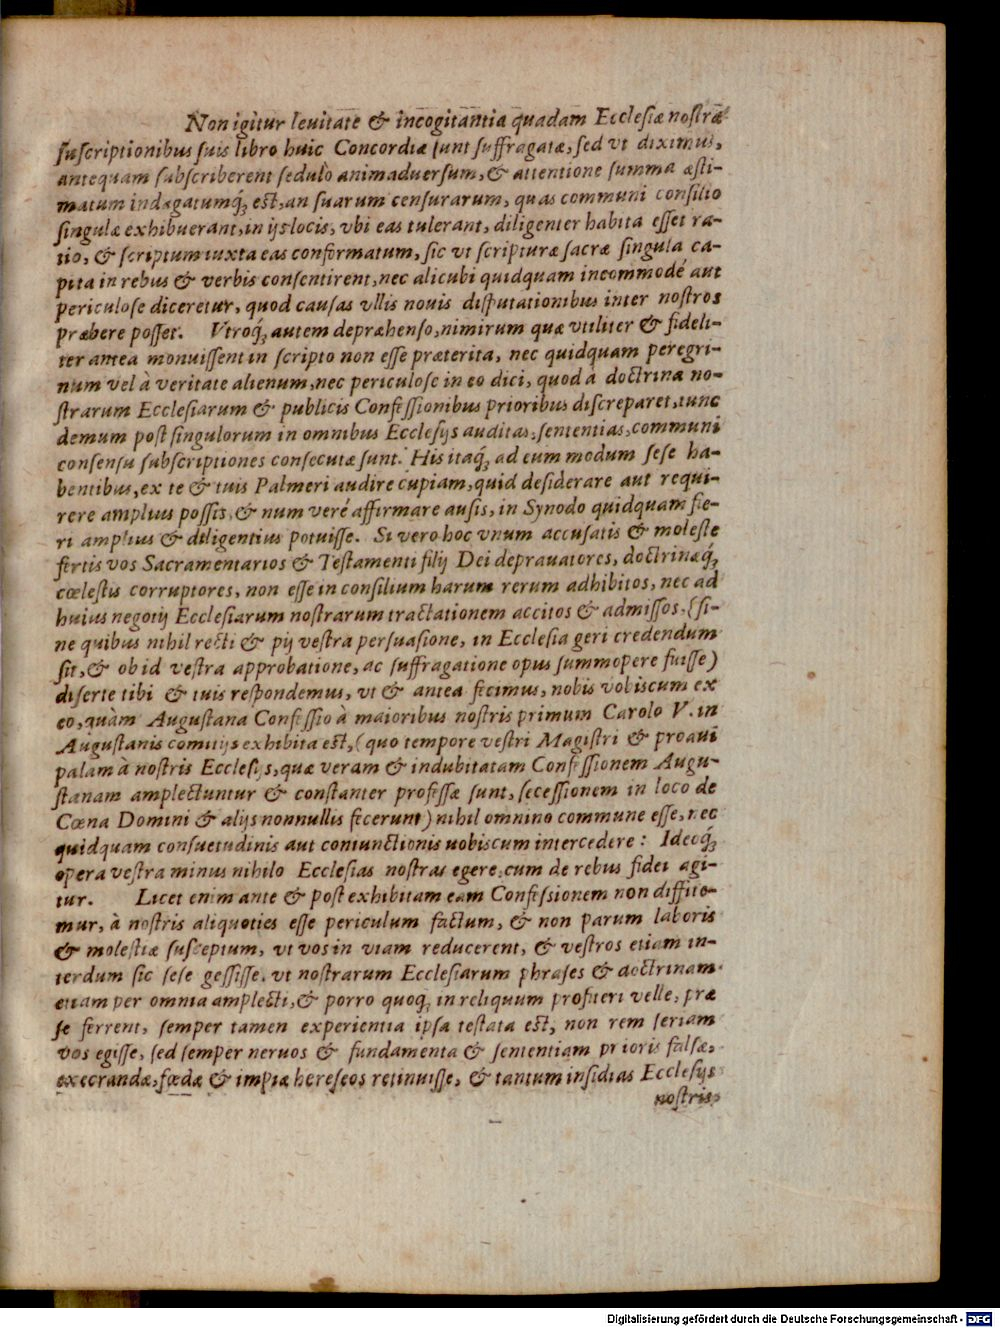 Non igitur leuitate & incogitantia quadam Ecclesiæ nostræ
suscriptionibus suis libro huic Concordiæ sunt suffragatæ, sed vt diximus,
antequam subscriberent sedulò animaduersum, & attentione summa æsti-
matum indagatumq́; est, an suarum censurarum, quas communi consilio
singulæ exhibuerant, in ijs locis, vbi eas tulerant, diligenter habita esset ra-
tio, & scriptum iuxta eas conformatum, sic vt scripturæ sacræ singula ca-
pita in rebus & verbis consentirent, nec alicubi quidquam incommodé aut
periculose diceretur, quod causas vllis nouis disputationibus inter nostros
præbere posset. Vtroq́; autem depræhenso, nimirum quæ vtiliter & fideli-
ter antea monuissent in scripto non esse præterita, nec quidquam peregri-
num vel à veritate alienum, nec periculose in eo dici, quod à doctrina no-
strarum Ecclesiarum & publicis Confessionibus prioribus discreparet, tunc
demum post singulorum in omnibus Ecclesijs auditas, sententias, communi
consensu subscriptiones consecutæ sunt. His itaq́; ad eum modum sese ha-
bentibus, ex te & tuis Palmeri audire cupiam, quid desiderare aut requi-
rere amplius possis, & num veré affirmare ausis, in Synodo quidquam fie-
ri amplius & diligentius potuisse. Si vero hoc vnum accusatis & moleste
fertis vos Sacramentarios & Testamenti filij Dei deprauatores, doctrinæq́;
cœlestis corruptores, non esse in consilium harum rerum adhibitos, nec ad
huius negotij Ecclesiarum nostrarum tractationem accitos & admissos, (si-
ne quibus nihil recti & pij vestra persuasione, in Ecclesia geri credendum
sit, & ob id vestra approbatione, ac suffragatione opus summopere fuisse)
diserte tibi & tuis respondemus, vt & antea fecimus, nobis vobiscum ex
eo, quàm Augustana Confessio à maioribus nostris primum Carolo V. in
Augustanis comitijs exhibita est, (quo tempore vestri Magistri & proaui
palam à nostris Ecclesijs, quæ veram & indubitatam Confessionem Augu-
stanam amplectuntur & constanter professæ sunt, secessionem in loco de
Cœna Domini & alijs nonnullis fecerunt) nihil omnino commune esse, nec
quidquam consuetudinis aut coniunctionis uobiscum intercedere: Ideoq́;
opera vestra minus nihilo Ecclesias nostras egere, cum de rebus fidei agi-
tur. Licet enim ante & post exhibitam eam Confessionem non diffite-
mur, à nostris aliquoties esse periculum factum, & non parum laboris
& molestiæ susceptum, vt vos in viam reducerent, & vestros etiam in-
terdum sic sese gessisse, vt nostrarum Ecclesiarum phrases & doctrinam
etiam per omnia amplecti, & porro quoq́; in reliquum profiteri velle, præ
se ferrent, semper tamen experientia ipsa testata est, non rem seriam
vos egisse, sed semper neruos & fundamenta & sententiam prioris falsæ,
execrandæ, fœdæ & impiæ hereseos retinuisse, & tantum insidias Ecclesijs
nostris
Digitalisierung gefördert durch die Deutsche Forschungsgemeinschaft - DFG